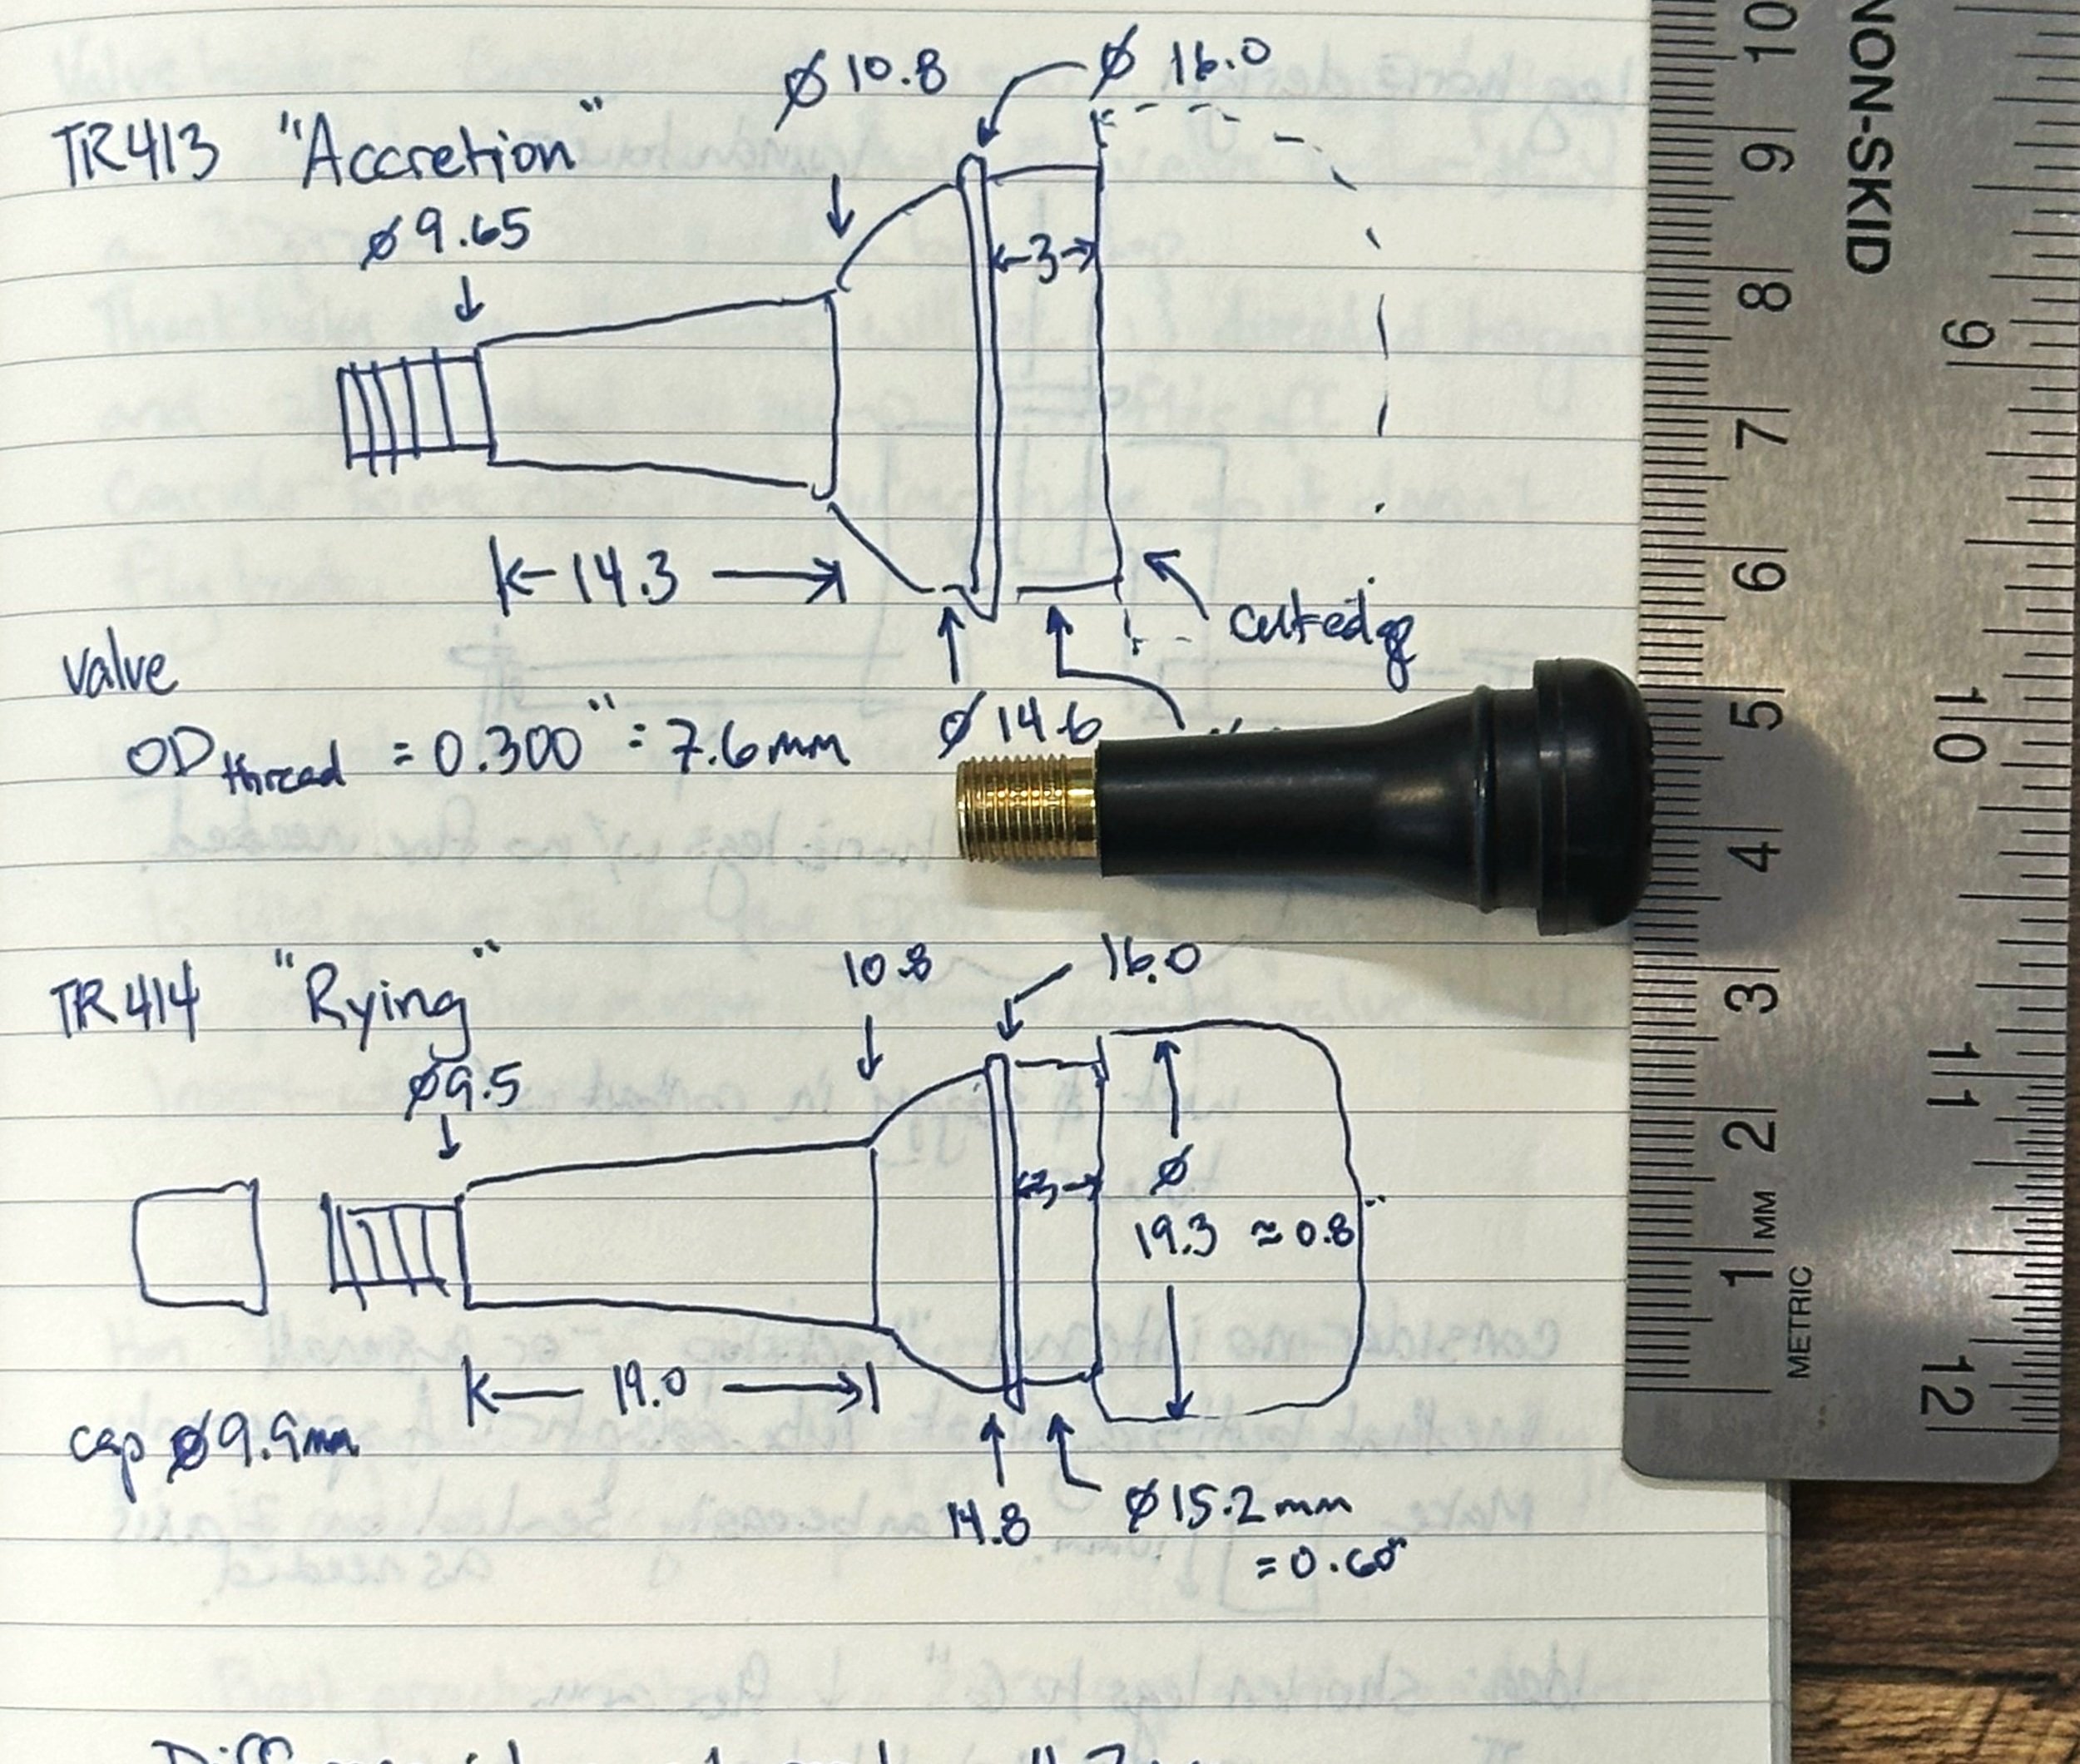 Ø 10.8
Ø 16.0
TR413 "Accretion"
Ø 9.65
3
14.3
cut edge
valve
Ø 14.6
OD thread = 0.300" = 7.6mm
TR414 "Rying"
10.8
16.0
Ø9.5
3
Ø
19.3 ≈ 0.8"
19.0
cap Ø9.9mm
14.8
Ø15.2mm
= 0.60"
NON-SKID
10
9
8
7
6
5
4
3
2
1
MM
METRIC
9
10
11
12